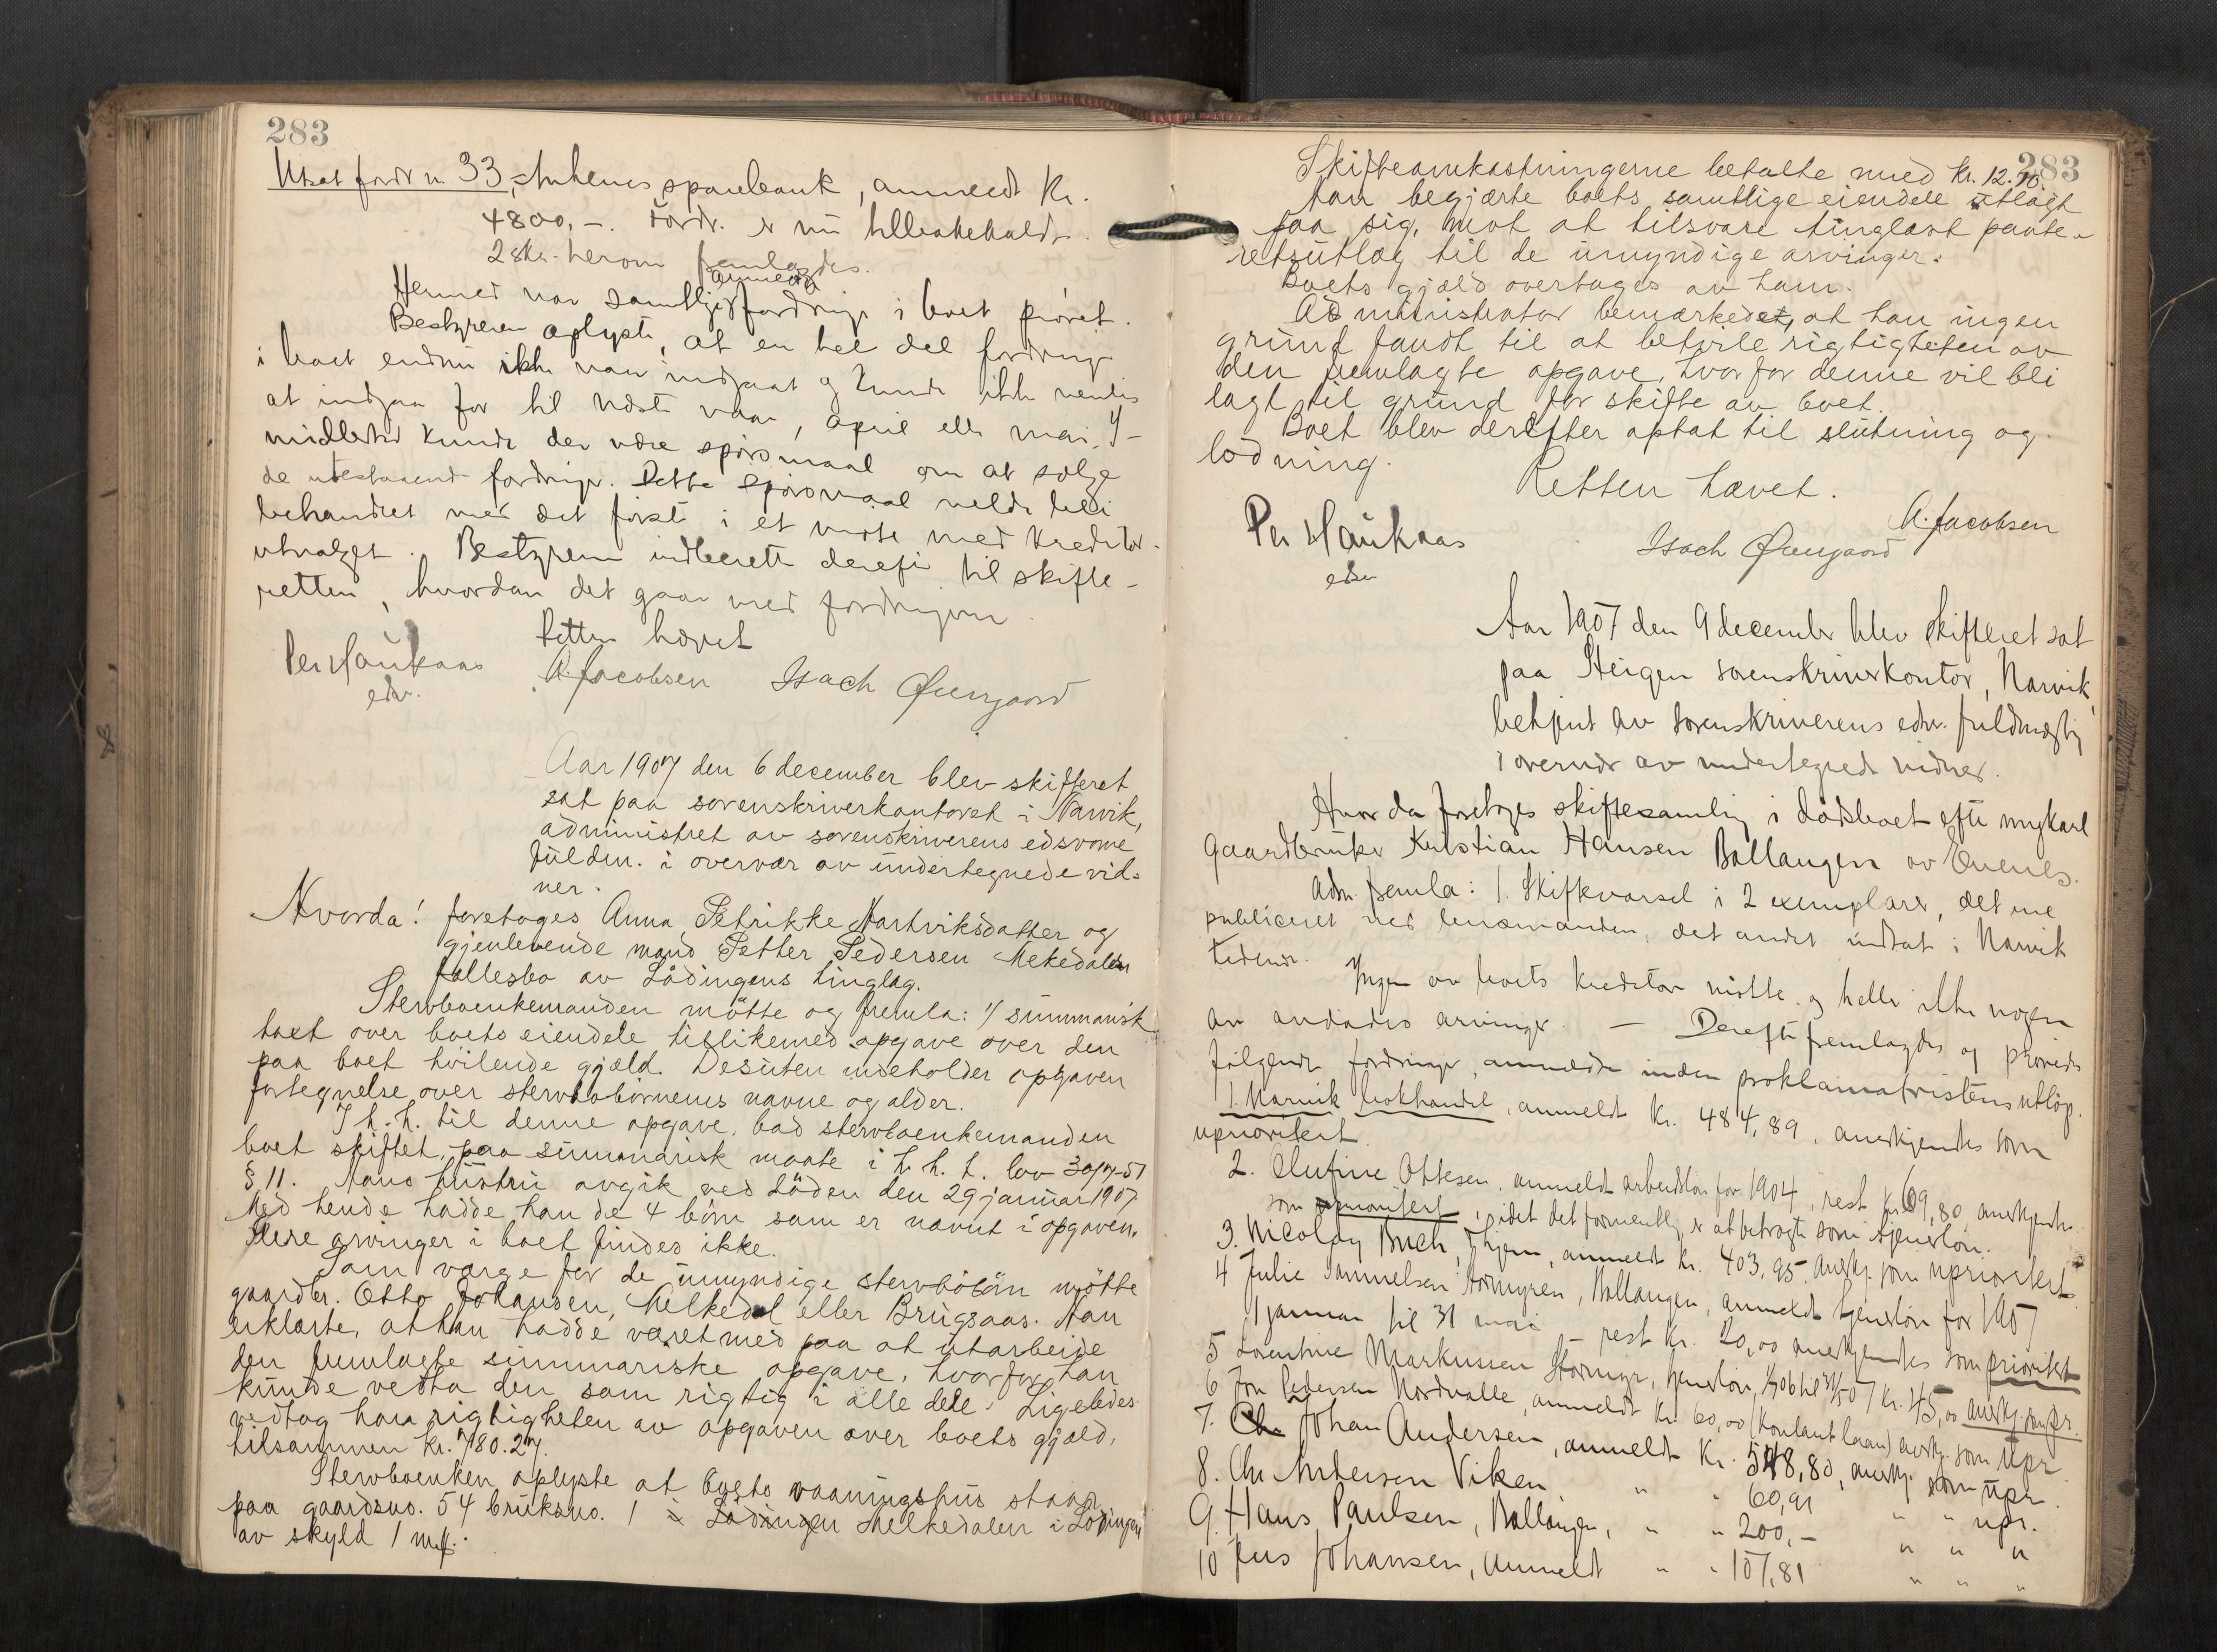 283
Utsat fordr n. 33, Ankenes sparebank, anmeldt Kr.
4800,-. Fordr. er nu tilbakeholdt.
2 skr. herom fremlagdes.
anmeldte
Hermed var samtlige fordringer i boet prøvet.
Bestyreren oplyste, at en hel del fordringer
i boet endnu ikke var indgaat og kunde ikke ventes
at indgaa før til næste vaar, april eller mai. I-
midlertid kunde der være spørsmaal om at sælge
de utestaaende fordringer. Dette spørsmaal vilde bli
behandlet med det første i et møte med kreditor-
utvalget. Bestyreren indberetter derefter til skifte-
retten, hvordan det gaar med fordringerne.
Retten hævet
Per Haukaas
edsv.
A. Jacobsen Isach Øvergaard
Aar 1907 den 6 december blev skifteret
sat paa sorenskriverkontoret i Narvik,
administret av sorenskriverens edsvorne
fuldm. i overvær av undertegnede vid-
ner.
Hvorda! foretoges Anna Petrikke Hartviksdatter og
gjenlevende mand Petter Pedersen Melkedalen
fællesbo av Lødingens tinglag.
Stervboenkemanden møtte og fremla: 1/ summarisk
taxt over boets eiendele tillikemed opgave over den
paa boet hvilende gjæld. Desuten indeholder opgaven
fortegnelse over stervbobørnenes navne og alder.
I h. h. til denne opgave. bad stervboenkemanden
boet skiftet paa summarisk maate i h. h. t. lov 30/7-51
§ 11. Hans hustru avgik ved døden den 29 januar 1907
Med hende hadde han de 4 børn som er nævnt i opgaven.
Flere arvinger i boet findes ikke.
Som værge for de umyndige stervbobørn møtte
gaardbr. Otto Johansen, Melkedal eller Brugsaas. Han
erklærte, at han hadde været med paa at utarbeide
den fremlagte summariske opgave, hvorfor han
kunde vedta den som rigtig i alle dele. Ligeledes
vedtog han rigtigheten av opgaven over boets gjæld,
tilsammen kr. 780.27.
Stervboenken oplyste at boets vaaningshus staar
paa gaardsno. 54 bruksno. 1 i Lødingen Melkedalen i Lødingen
av skyld 1 mrk.
283
Skifteomkostningerne betalte med Kr. 12.70.
Han begjærte boets samtlige eiendele utlagt
paa sig, mot at tilsvare tinglæst pante-
retsutlæg til de umyndige arvinger.
Boets gjæld overtages av ham.
Administrator bemærkedet, at han ingen
grund fandt til at betvile rigtigheten av
den fremlagte opgave, hvorfor denne vil bli
lagt til grund for skifte av boet.
Boet blev derefter optat til slutning og
lodning.
Retten hævet.
Per Haukaas
edsv
A. Jacobsen
Isach Øvergaard
Aar 1907 den 9 december blev skifteret sat
paa Steigen sorenskriverkontor, Narvik,
betjent av sorenskriverens edsv. fuldmægtig
i overvær av undertegnede vidner.
Hvorda foretoges skiftesamling i dødsboet efter ungkarl
gaardbruker Kristian Hansen Ballangen av Evenes.
Adm. fremla: 1. Skiftevarsel i 2 exemplarer, det ene
publiceret ved lensmanden, det andet indtat i Narvik
tidende.
Ingen av boets kreditorer møtte og heller ikke nogen
av avdødes arvinger. — Derefter fremlagdes og prøvedes
følgende fordringer, anmeldte inden proklamafristens utløp.
1. Narvik bokhandel, anmeldt Kr. 484,89, anerkjendtes som
uprioritert.
2. Olufine Ottesen, anmeldt arbeidsløn for 1904, rest Kr. 69,80, anerkjendtes
som uprioritert, idet det formentlig er at betragte som tjenerløn.
3. Nicolay Buch, Thjem, anmeldt Kr. 403,95, anerkj. som uprioritert
4 Julie Samuelsen Stormyren, Ballangen, anmeldt tjenerløn for 1907
1 januar til 31 mai - rest Kr. 20,00 anerkjendtes som prioritert
5 Lorentine Markussen Stormyr, tjenerløn, 1/7 06 til 31/5 07 Kr. 45,00 anerkj. som pr.
6 Jon Pedersen Nordvalle, anmeldt kr. 60,00 (kontant laan) anerkj. som upr
7. Ch. Johan Andersen, anmeldt Kr. 548,80, anerkj. som upr.
8. Chr Andersen Viken " " 60,91 " " upr.
9. Hans Paulsen, Ballangen, " " 200,- " " "
10 Jens Johansen, anmeldt " " 107,81 " " "